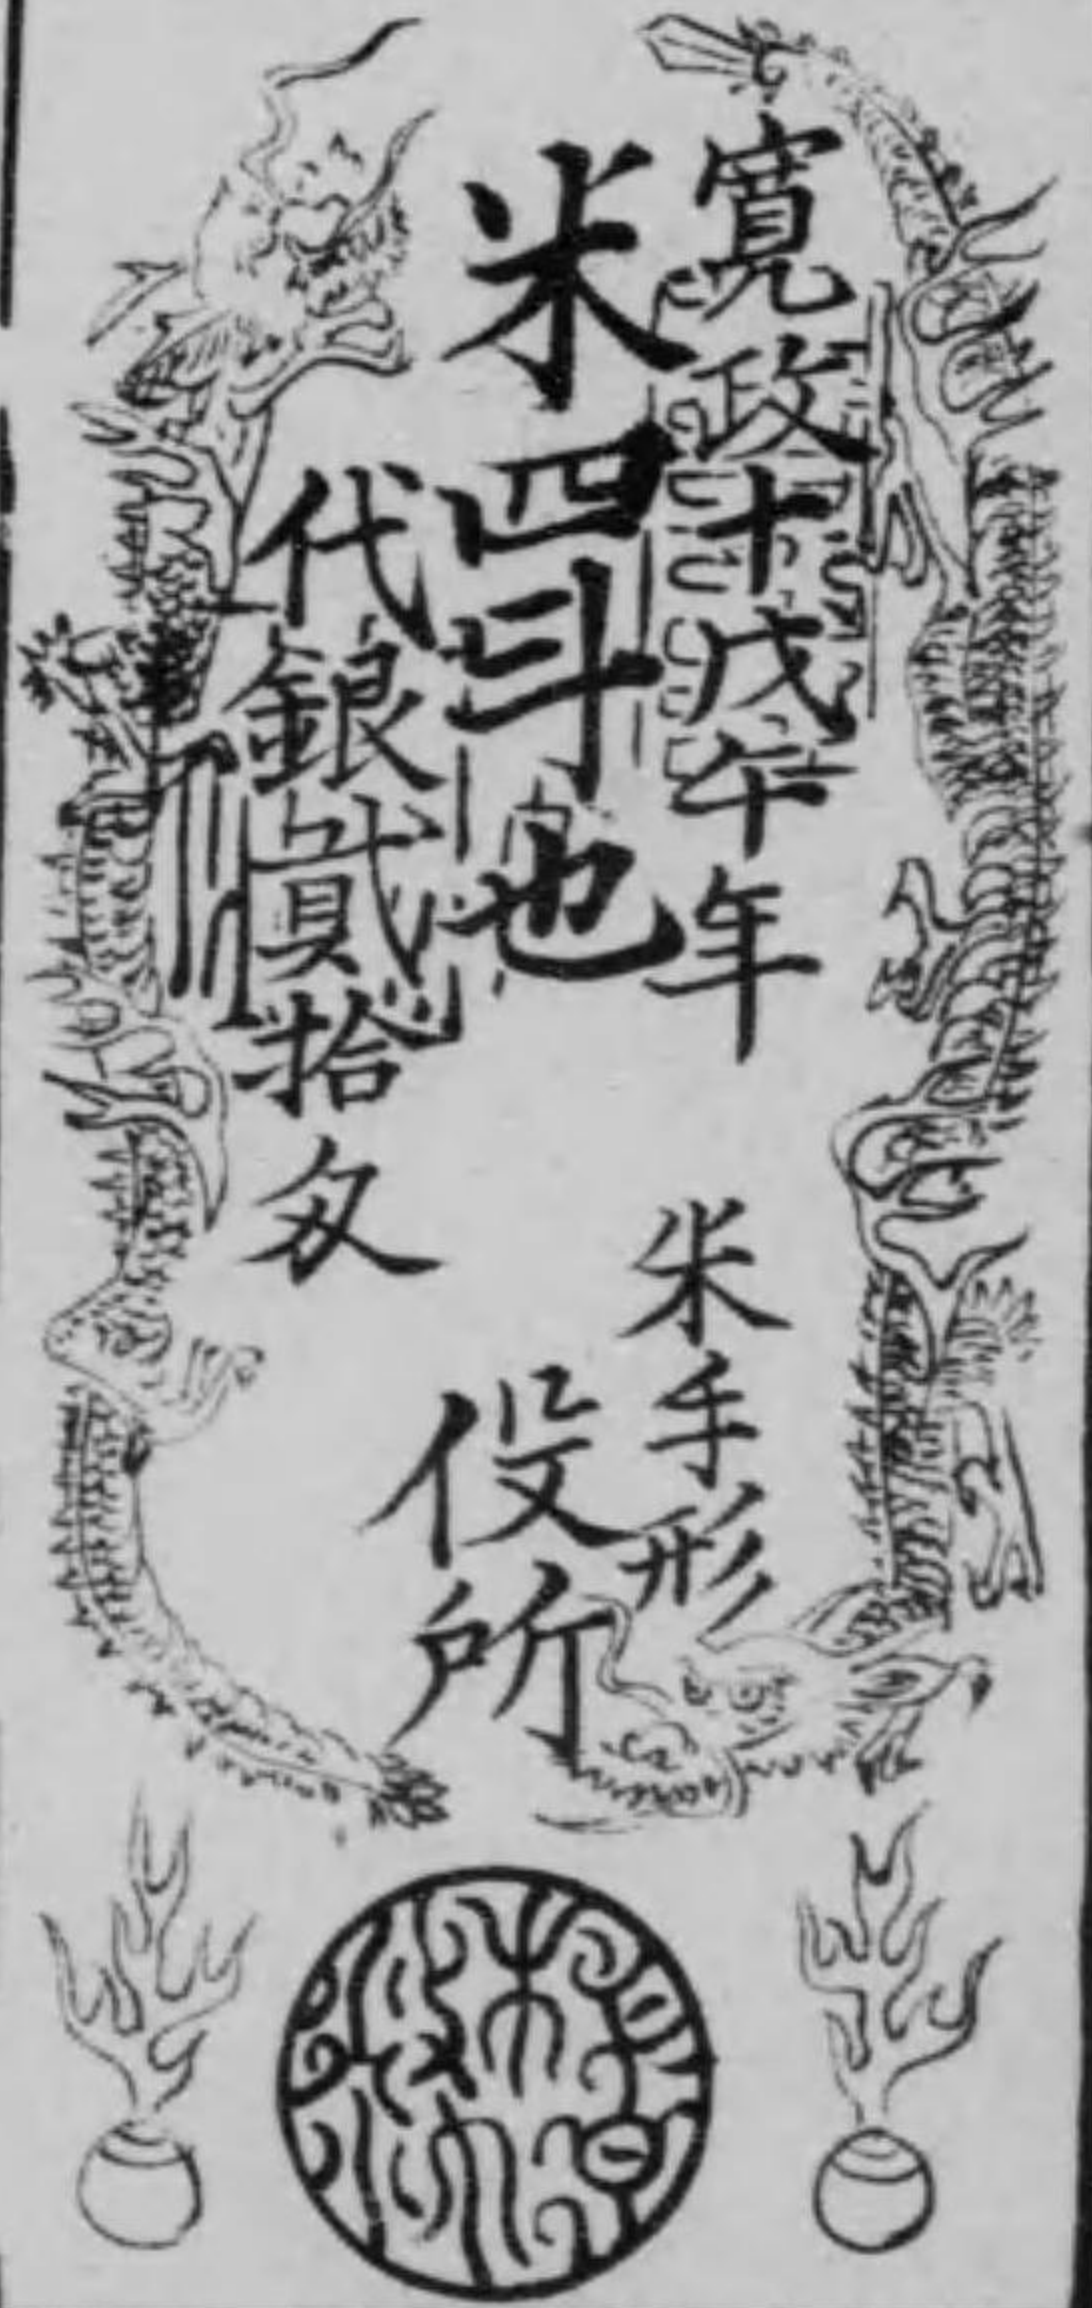 寛政十戊午年
米四斗也
代銀貮拾匁
米手形
役所